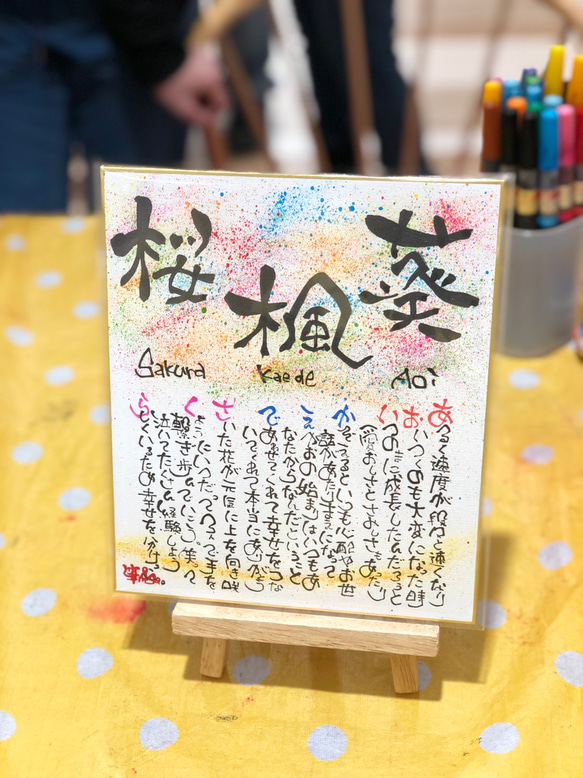 葵
楓
桜
Aoi
Kaede
Sakura
あるく速度が段々と速くなり
おいつくのも大変になった時
いつの間に成長したんだろうと
愛おしさとさみしさもあったり
かぞえるといつも心配やお世
えがおの始まりはいつもあ
なたからなんだということ
であわせてくれて幸せをつな
いでくれて本当にありがとう
さいた花が元気に上を向き咲
いつだって 手を
繋ぎ歩んでいこう。笑って
泣いてたくさん経験しよう
幸せを分ける